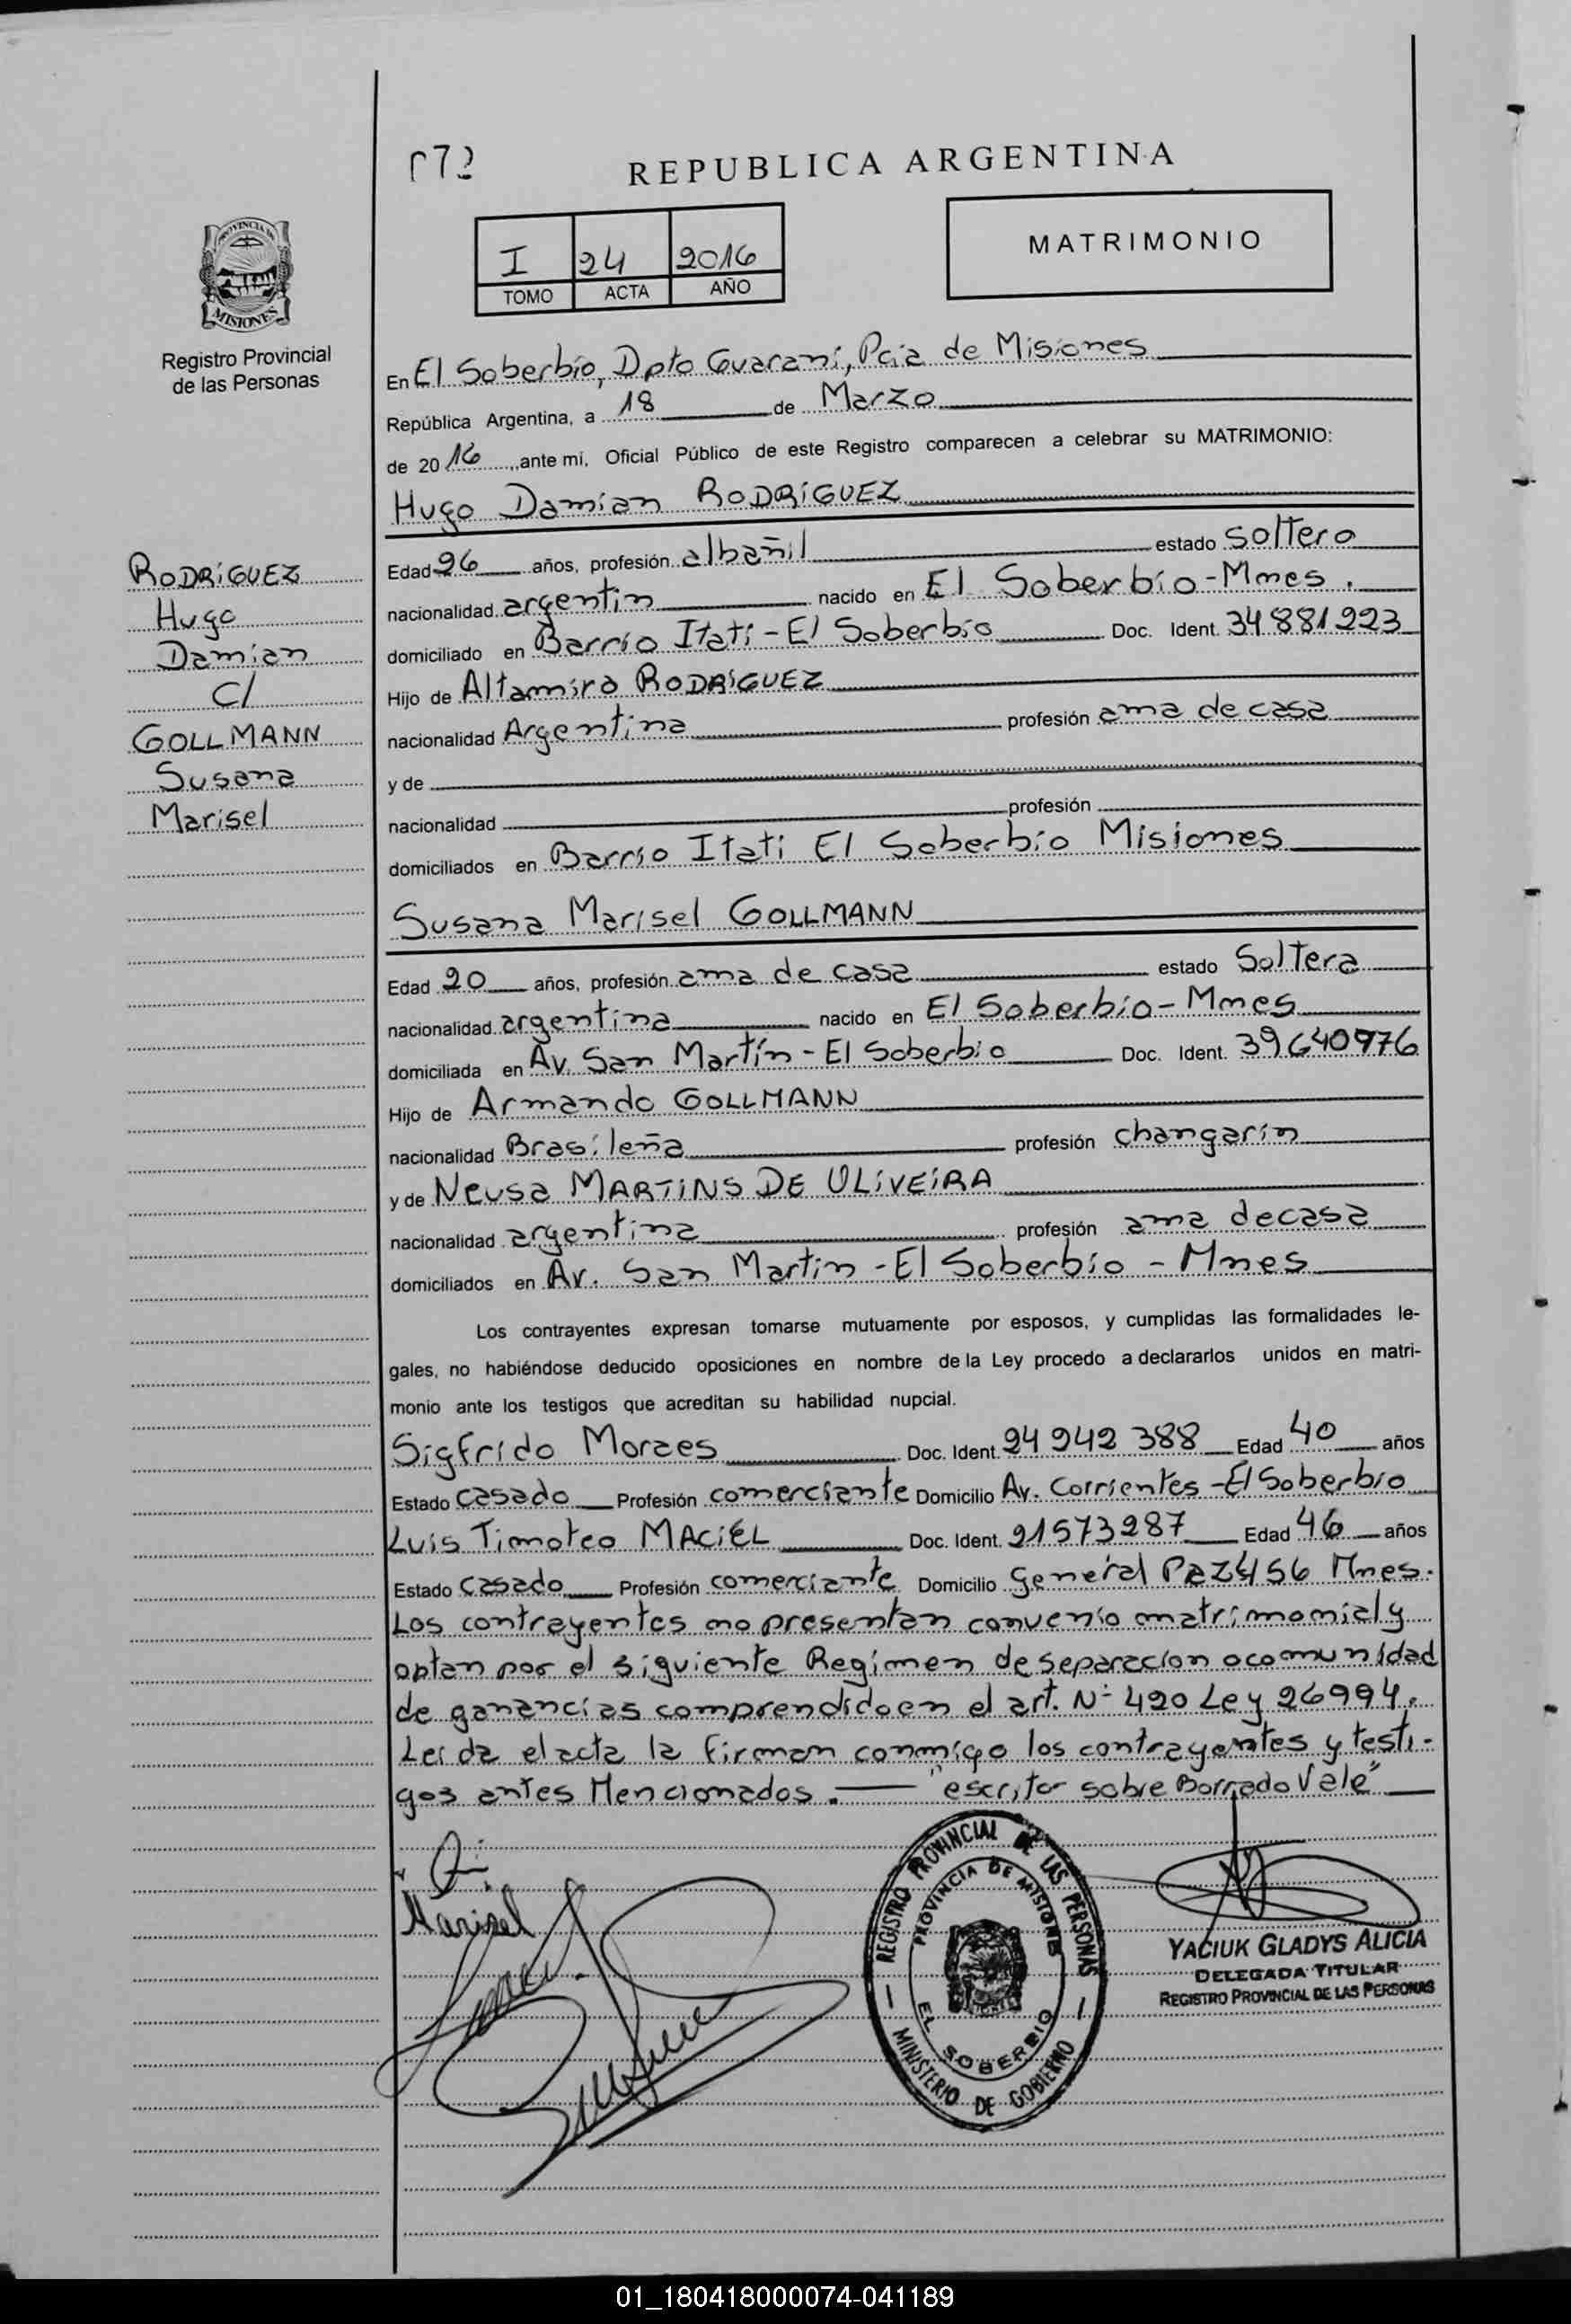 REPUBLICA ARGENTINA
I 24 2016
TOMO ACTA AÑO
MATRIMONIO
PROVINCIA DE
MISIONES
Registro Provincial
de las Personas
En El Soberbio, Dpto Guaraní, Pcia de Misiones
República Argentina, a 18 de Marzo
de 2016, ante mi, Oficial Público de este Registro comparecen a celebrar su MATRIMONIO:
Hugo Damian RODRÍGUEZ
RODRÍGUEZ
Hugo
Damian
C/
GOLLMANN
Susana
Marisel
Edad 26 años, profesión albañil estado soltero
nacionalidad argentin nacido en El Soberbio-Mnes.
domiciliado en Barrio Itatí-El Soberbio Doc. Ident. 34881223
Hijo de Altamira RODRÍGUEZ
nacionalidad Argentina profesión ama de casa
y de
nacionalidad profesión
domiciliados en Barrio Itati El Soberbio Misiones
Susana Marisel GOLLMANN
Edad 20 años, profesión ama de casa estado Soltera
nacionalidad argentina nacido en El Soberbio-Mnes
domiciliada en Av. San Martín-El Soberbio Doc. Ident. 39640976
Hijo de Armando GOLLMANN
nacionalidad Brasileña profesión changarín
y de Neusa MARTINS DE OLIVEIRA
nacionalidad argentina profesión ama decasa
domiciliados en Av. San Martin-El Soberbio-Mnes
Los contrayentes expresan tomarse mutuamente por esposos, y cumplidas las formalidades le-
gales, no habiéndose deducido oposiciones en nombre de la Ley procedo a declararlos unidos en matri-
monio ante los testigos que acreditan su habilidad nupcial.
Sigfrido Moraes Doc. Ident. 24 942 388 Edad 40 años
Estado casado Profesión comerciante Domicilio Av. Corrientes-El Soberbio
Luis Timoteo MACIEL Doc. Ident. 21573287 Edad 46 años
Estado casado Profesión comerciante Domicilio General Paz 456 Mnes.
Los contrayentes no presentan convenio matrimonial y
optan por el siguiente Regimen de separacion o comunidad
de ganancias comprendido en el art. N- 420 Ley 26994.
Leída el acta la firman conmigo los contrayentes y testi-
gos antes Mencionados. — "escrito sobre Borrado Vale"
Marisel
REGISTRO PROVINCIAL DE LAS PERSONAS
PROVINCIA DE MISIONES
EL SOBERBIO
MINISTERIO DE GOBIERNO
YACIUK GLADYS ALICIA
DELEGADA TITULAR
REGISTRO PROVINCIAL DE LAS PERSONAS
01_180418000074-041189